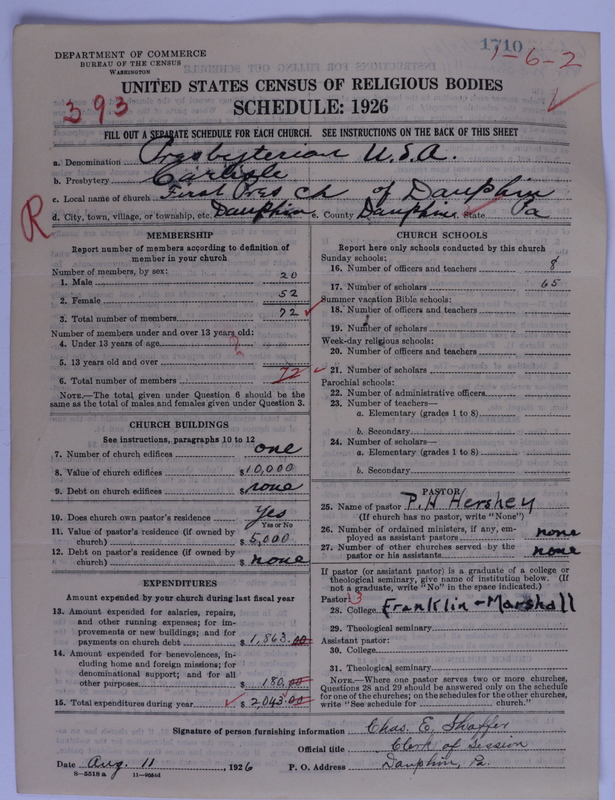 1710
1-6-2
DEPARTMENT OF COMMERCE
BUREAU OF THE CENSUS
WASHINGTON
UNITED STATES CENSUS OF RELIGIOUS BODIES
393
SCHEDULE: 1926
FILL OUT A SEPARATE SCHEDULE FOR EACH CHURCH. SEE INSTRUCTIONS ON THE BACK OF THIS SHEET
a. Denomination Presbyterian U.S.A.
b. Presbytery Carlisle
c. Local name of church First Pres Ch of Dauphin
R
d. City, town, village, or township, etc. Dauphin e. County Dauphin State Pa
MEMBERSHIP
Report number of members according to definition of
member in your church
Number of members, by sex:
1. Male 20
2. Female 52
3. Total number of members 72
Number of members under and over 13 years old:
4. Under 13 years of age ?
5. 13 years old and over
6. Total number of members 72
NOTE.—The total given under Question 6 should be
the same as the total of males and females given under Question 3.
CHURCH BUILDINGS
See instructions, paragraphs 10 to 12
7. Number of church edifices one
8. Value of church edifices $10,000
9. Debt on church edifices $ none
10. Does church own pastor's residence yes
Yes or No
11. Value of pastor's residence (if owned by
church) $ 5,000
12. Debt on pastor's residence (if owned by
church) $ none
EXPENDITURES
Amount expended by your church during last fiscal year
13. Amount expended for salaries, repairs,
and other running expenses; for im-
provements or new buildings; and for
payments on church debt $ 1,863.00
14. Amount expended for benevolences, in-
cluding home and foreign missions; for
denominational support; and for all
other purposes $ 180.00
15. Total expenditures during year $ 2,043.00
CHURCH SCHOOLS
Report here only schools conducted by this church
Sunday schools:
16. Number of officers and teachers 8
17. Number of scholars 65
Summer vacation Bible schools:
18. Number of officers and teachers
19. Number of scholars
Week-day religious schools:
20. Number of officers and teachers
21. Number of scholars
Parochial schools:
22. Number of administrative officers
23. Number of teachers—
a. Elementary (grades 1 to 8)
b. Secondary
24. Number of scholars—
a. Elementary (grades 1 to 8)
b. Secondary
PASTOR
25. Name of pastor P. H Hershey
(If church has no pastor, write "None")
26. Number of ordained ministers, if any, em-
ployed as assistant pastors none
27. Number of other churches served by the
pastor or his assistants none
If pastor (or assistant pastor) is a graduate of a college or
theological seminary, give name of institution below. (If
not a graduate, write "No" in the space indicated.)
Pastor: 3
28. College Franklin-Marshall
29. Theological seminary
Assistant pastor:
30. College
31. Theological seminary
NOTE.—Where one pastor serves two or more churches,
Questions 28 and 29 should be answered only on the schedule
for one of the churches; on the schedules for the other churches,
write "See schedule for church."
Signature of person furnishing information Chas. E. Shaffer
Official title Clerk of Session
Date Aug. 11, 1926 P. O. Address Dauphin, Pa.
8—5518 a 11—9054d